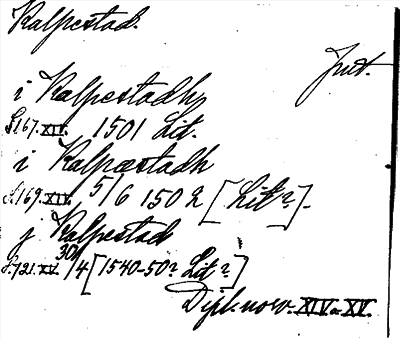 Kalpestad.
Jut.
i Kalpestadh
S. 167. XIV. 1501 Lit.
i Kalpæstadh
S. 169. XIV 5/6 1502 [Lit?].
j Kalpestad
S. 721. XV. 30/4 [1540-50? Lit?]
Dipl. norv. XIV a XV.